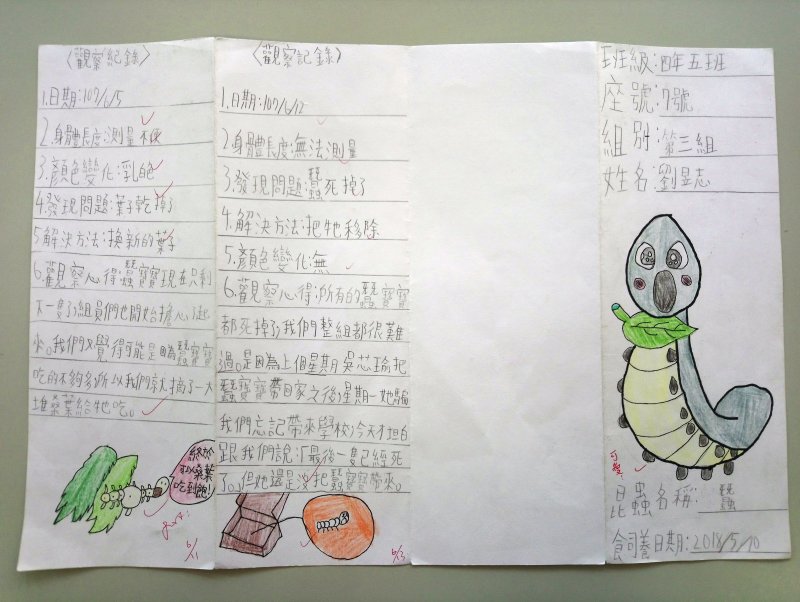 〈觀察紀錄〉
1.日期:107/6/5
2.身體長度:測量不便
3.顏色變化:乳白色
4.發現問題:葉子乾掉了
5解決方法:換新的葉子
6.觀察心得:蠶寶寶現在只剩
下一隻了,組員們也開始擔心了起
來。我們又覺得可能是因為蠶寶寶
吃的不夠多,所以我們就摘了一大
堆桑葉給牠吃。
終於
可以桑葉
吃到飽!
6/11
〈觀察記錄〉
1.日期:107/6/12
2.身體長度:無法測量
3.發現問題:蠶死掉了
4.解決方法:把牠移除
5.顏色變化:無
6.觀察心得:所有的蠶寶寶
都死掉了,我們整組都很難
過。是因為上個星期吳芯瑜把
蠶寶寶帶回家之後,星期一她騙
我們忘記帶來學校,今天才坦白
跟我們說:「最後一隻已經死
了。」但她還是沒把蠶寶寶帶來。
6/13
班級:四年五班
座號:7號
組別:第三組
姓名:劉昱志
可愛
昆蟲名稱:蠶
飼養日期:2018/5/10